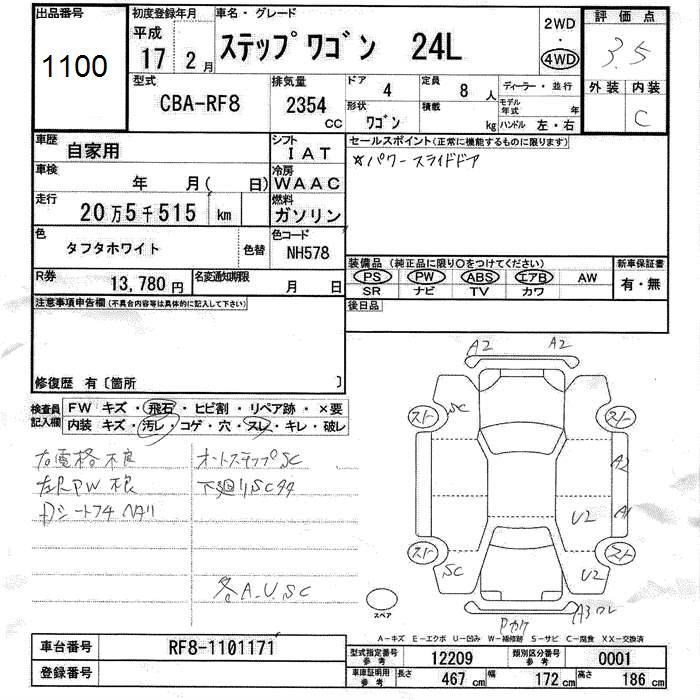 出品番号
1100
初度登録年月
平成
17 年 2 月
車名・グレード
ステップワゴン 24L
2WD
・
4WD
評価点
3.5
外装 内装
C
型式
CBA-RF8
排気量
2354 CC
ドア
4
定員
8 人
形状
ワゴン
積載
kg
ディーラー・並行
モデル年式 年
ハンドル 左・右
車歴
自家用
シフト
IAT
車検
年 月( 日)
冷房
WAAC
走行
20万5千515 km
燃料
ガソリン
色
タフタホワイト
色替
色コード
NH578
R券
13,780 円
名変通知期限
月 日
セールスポイント(正常に機能するものに限ります)
☆パワースライドドア
装備品 (純正品に限り○をつけてください)
PS PW ABS エアB AW
SR ナビ TV カワ
新車保証書
有・無
後日品
注意事項申告欄(不具合内容等は具体的に記入して下さい)
修復歴 有〔箇所 〕
検査員記入欄
FW キズ・飛石・ヒビ割・リペア跡・×要
内装 キズ・汚レ・コゲ・穴・スレ・キレ・破レ
右電格不良
オートステップSC
左R PW 不良
下廻りSC
各A.U.SC
A2 A2
スト SC スト
A2
U2 A1
スト SC U2 スト
A3
スペア
A-キズ E-エクボ U-凹み W-補修跡 S-サビ C-腐食 XX-交換済
車台番号
RF8-1101171
登録番号
型式指定番号 参考
12209
類別区分番号 参考
0001
車庫証明用 参考
長さ 467 cm 幅 172 cm 高さ 186 cm